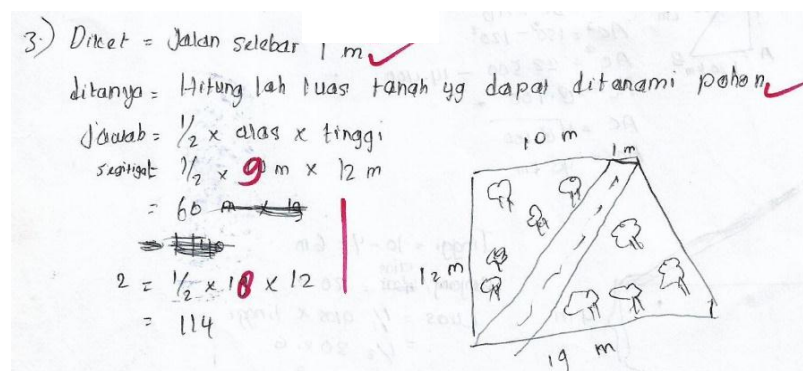 3.) Diket = Jalan selebar 1 m
ditanya = Hitung lah luas tanah yg dapat ditanami pohon
Jawab = 1/2 x alas x tinggi
segitiga 1/2 x 9 m x 12 m
= 60
2 = 1/2 x 18 x 12
= 114
10 m
1 m
12 m
19 m